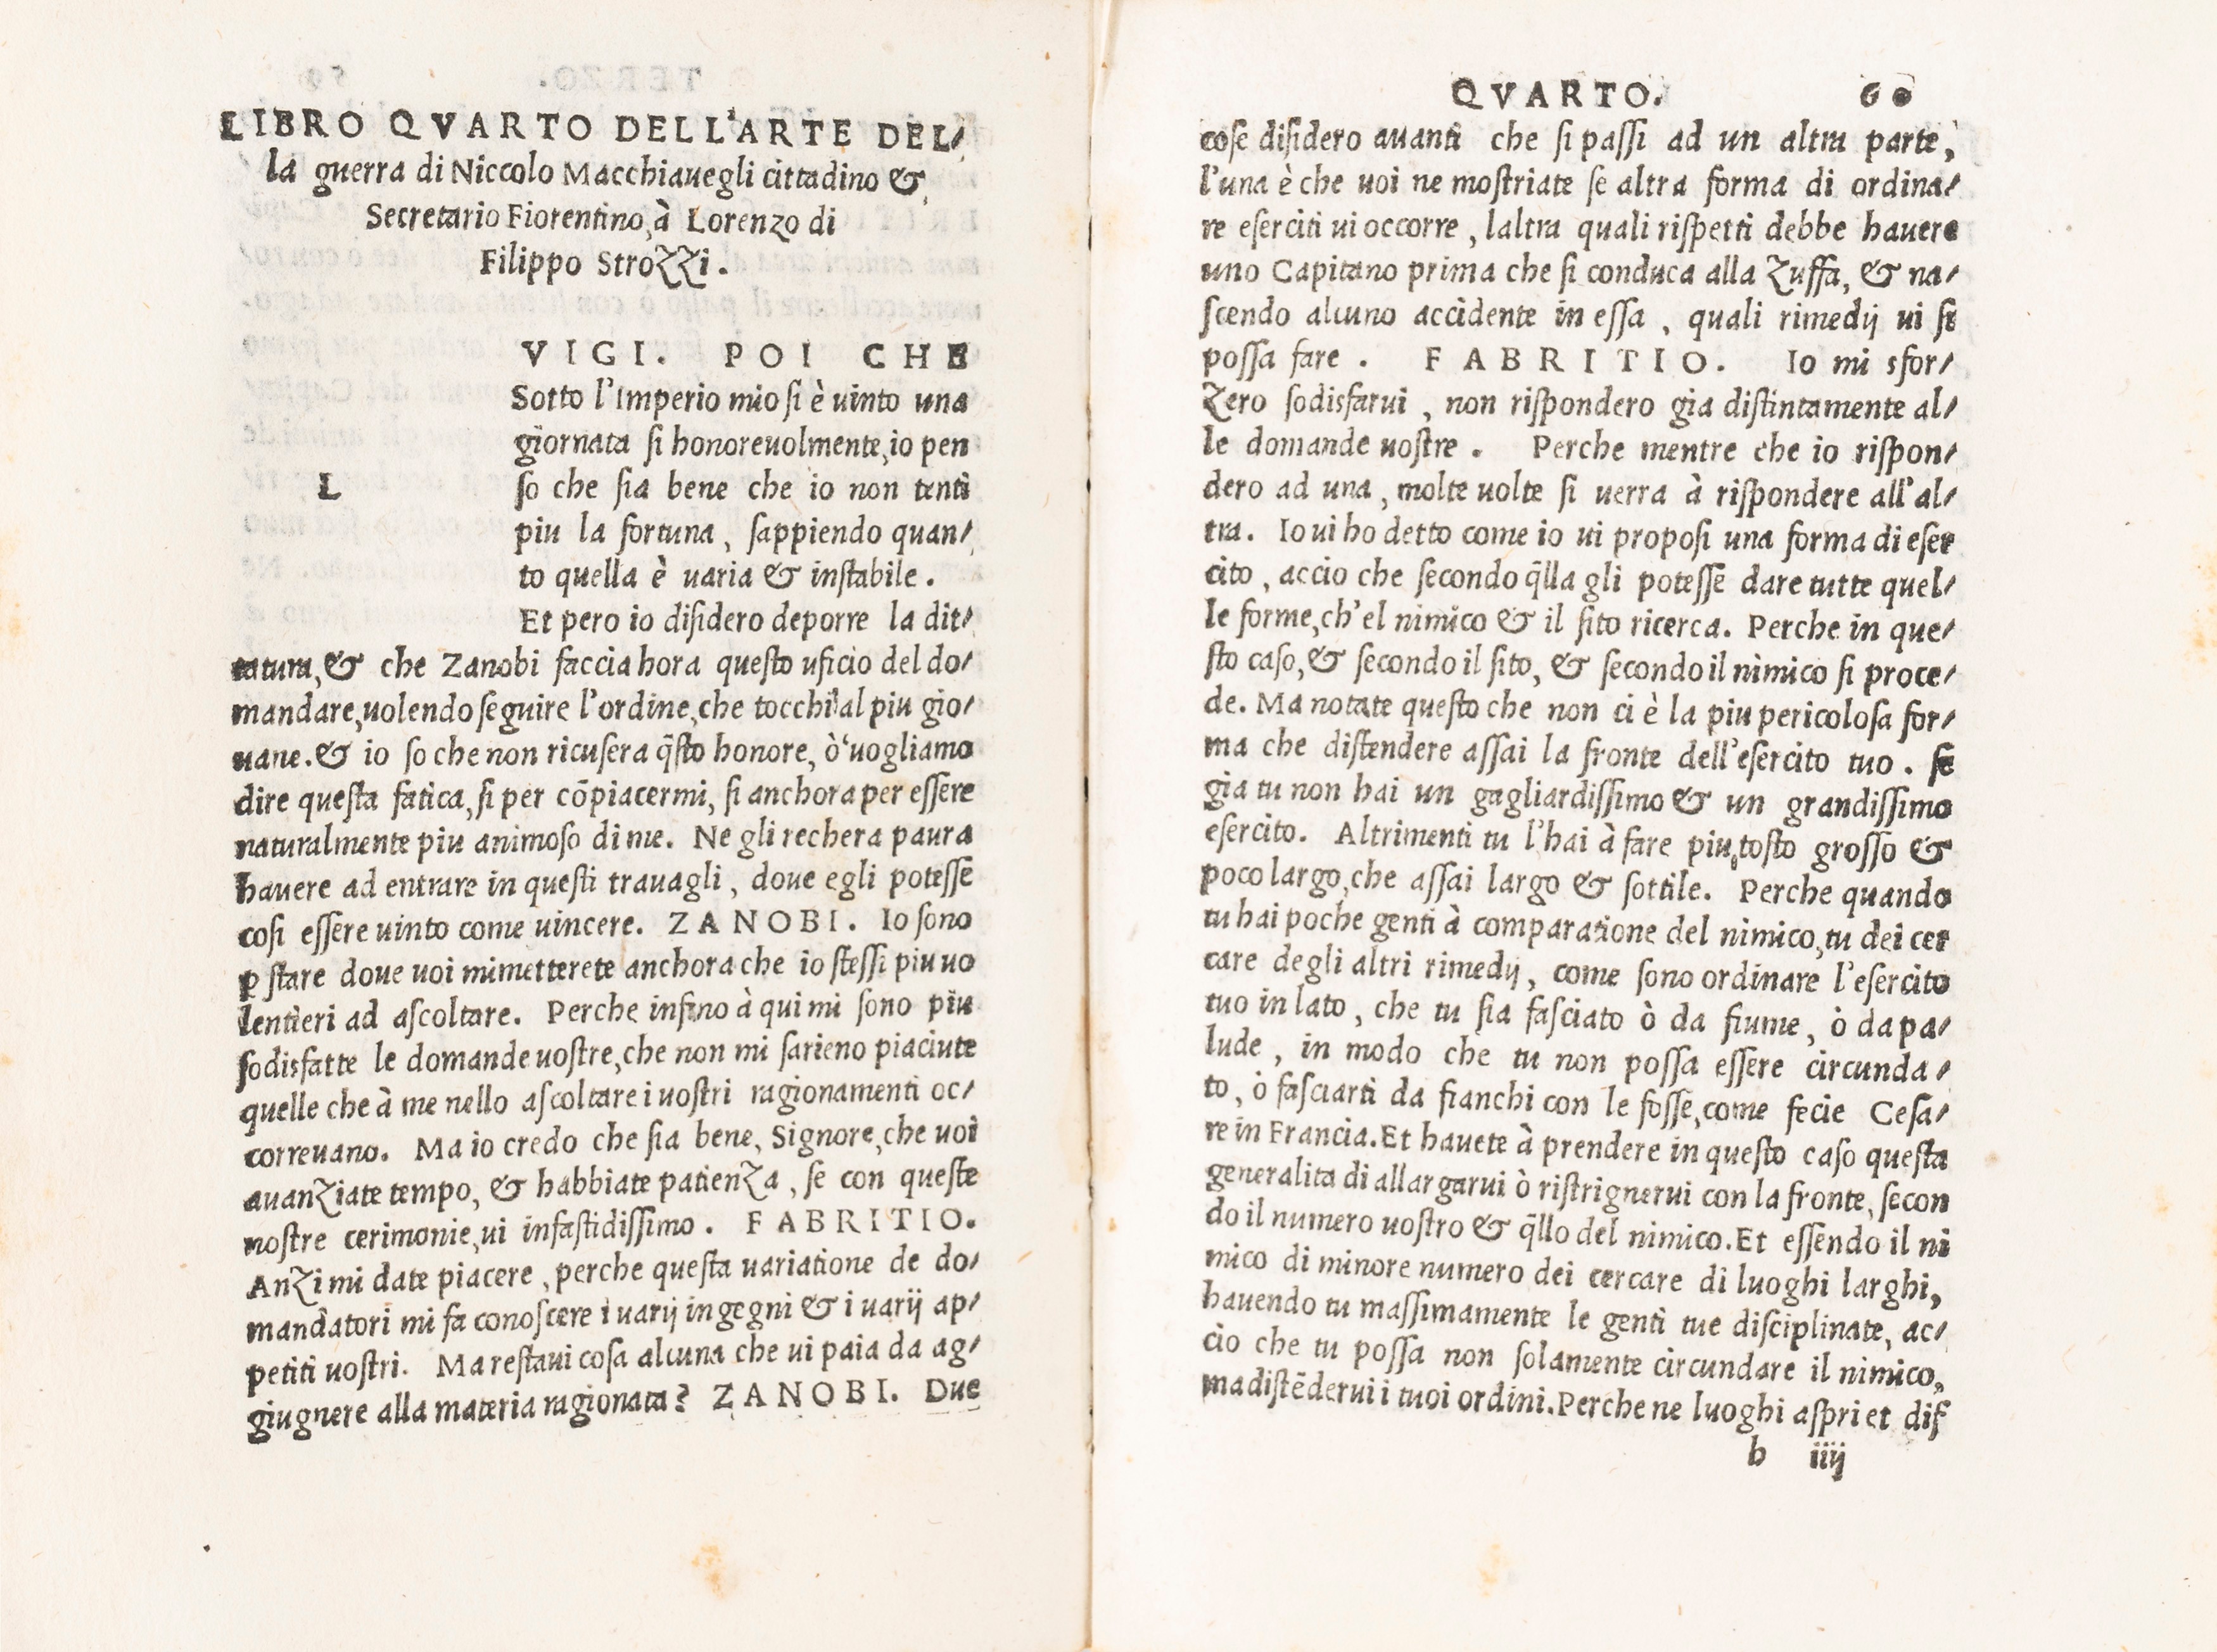 LIBRO QVARTO DELL'ARTE DEL/
la guerra di Niccolo Macchiauegli cittadino &
Secretario Fiorentino, à Lorenzo di
Filippo Strozzi.
L
VIGI. POI CHE
Sotto l'Imperio mio si è uinto una
giornata si honoreuolmente, io pen
so che sia bene che io non tenti
piu la fortuna, sappiendo quan/
to quella è uaria & instabile.
Et pero io disidero deporre la dit/
tatura, & che Zanobi faccia hora questo uficio del do/
mandare, uolendo seguire l'ordine, che tocchi al piu gio/
uane. & io so che non ricusera q̃sto honore, ò uogliamo
dire questa fatica, si per cõpiacermi, si anchora per essere
naturalmente piu animoso di me. Ne gli rechera paura
hauere ad entrare in questi trauagli, doue egli potesse
cosi essere uinto come uincere. ZANOBI. Io sono
ꝑ stare doue uoi mimetterete anchora che io stessi piu uo
lentieri ad ascoltare. Perche infino à qui mi sono piu
sodisfatte le domande uostre, che non mi sarieno piaciute
quelle che à me nello ascoltare i uostri ragionamenti oc/
correuano. Ma io credo che sia bene, Signore, che uoi
auanziate tempo, & habbiate patienza, se con queste
nostre cerimonie, ui infastidissimo. FABRITIO.
Anzi mi date piacere, perche questa uariatione de do/
mandatori mi fa conoscere i uarij ingegni & i uarij ap/
petiti uostri. Ma restaui cosa alcuna che ui paia da ag/
giugnere alla materia ragionata? ZANOBI. Due
QVARTO. 60
cose disidero auanti che si passi ad un altra parte,
l'una è che uoi ne mostriate se altra forma di ordina/
re eserciti ui occorre, laltra quali rispetti debbe hauere
uno Capitano prima che si conduca alla zuffa, & na/
scendo alcuno accidente in essa, quali rimedij ui si
possa fare. FABRITIO. Io mi sfor/
zero sodisfarui, non rispondero gia distintamente al/
le domande uostre. Perche mentre che io rispon/
dero ad una, molte uolte si uerra à rispondere all'al/
tra. Io ui ho detto come io ui proposi una forma di eser
cito, accio che secondo q̃lla gli potesse dare tutte quel/
le forme, ch'el nimico & il sito ricerca. Perche in que/
sto caso, & secondo il sito, & secondo il nimico si proce/
de. Ma notate questo che non ci è la piu pericolosa for/
ma che distendere assai la fronte dell'esercito tuo. se
gia tu non hai un gagliardissimo & un grandissimo
esercito. Altrimenti tu l'hai à fare piu tosto grosso &
poco largo, che assai largo & sottile. Perche quando
tu hai poche genti à comparatione del nimico, tu dei cer
care degli altri rimedij, come sono ordinare l'esercito
tuo in lato, che tu sia fasciato ò da fiume, ò da pa/
lude, in modo che tu non possa essere circunda/
to, ò fasciarti da fianchi con le fosse, come fecie Cesa/
re in Francia. Et hauete à prendere in questo caso questa
generalita di allargarui ò ristrignerui con la fronte, secon
do il numero uostro & q̃llo del nimico. Et essendo il ni
mico di minore numero dei cercare di luoghi larghi,
hauendo tu massimamente le genti tue disciplinate, ac/
cio che tu possa non solamente circundare il nimico,
ma distẽderui i tuoi ordini. Perche ne luoghi aspri et dif
b iiij